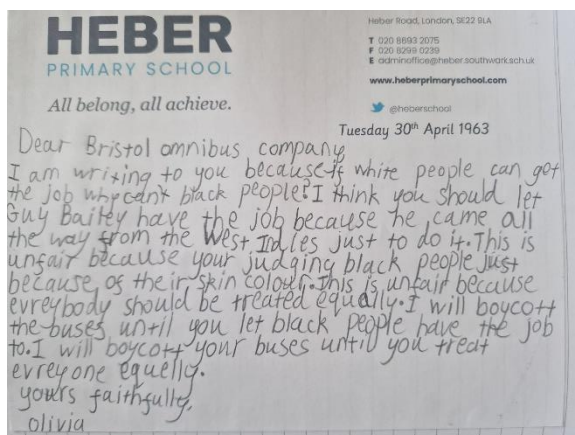 HEBER
PRIMARY SCHOOL
All belong, all achieve.
Heber Road, London, SE22 9LA
T 020 8693 2075
F 020 8299 0239
E adminoffice@heber.southwark.sch.uk
www.heberprimaryschool.com
@heberschool
Tuesday 30th April 1963
Dear Bristol omnibus company
I am writing to you because if white people can get
the job why can't black people? I think you should let
Guy Bailey have the job because he came all
the way from the West Indies just to do it. This is
unfair because your judging black people just
because of their skin colour. This is unfair because
evreybody should be treated equally. I will boycott
the buses until you let black people have the job
to. I will boycott your buses until you treat
evreyone equelly.
yours faithfully,
olivia